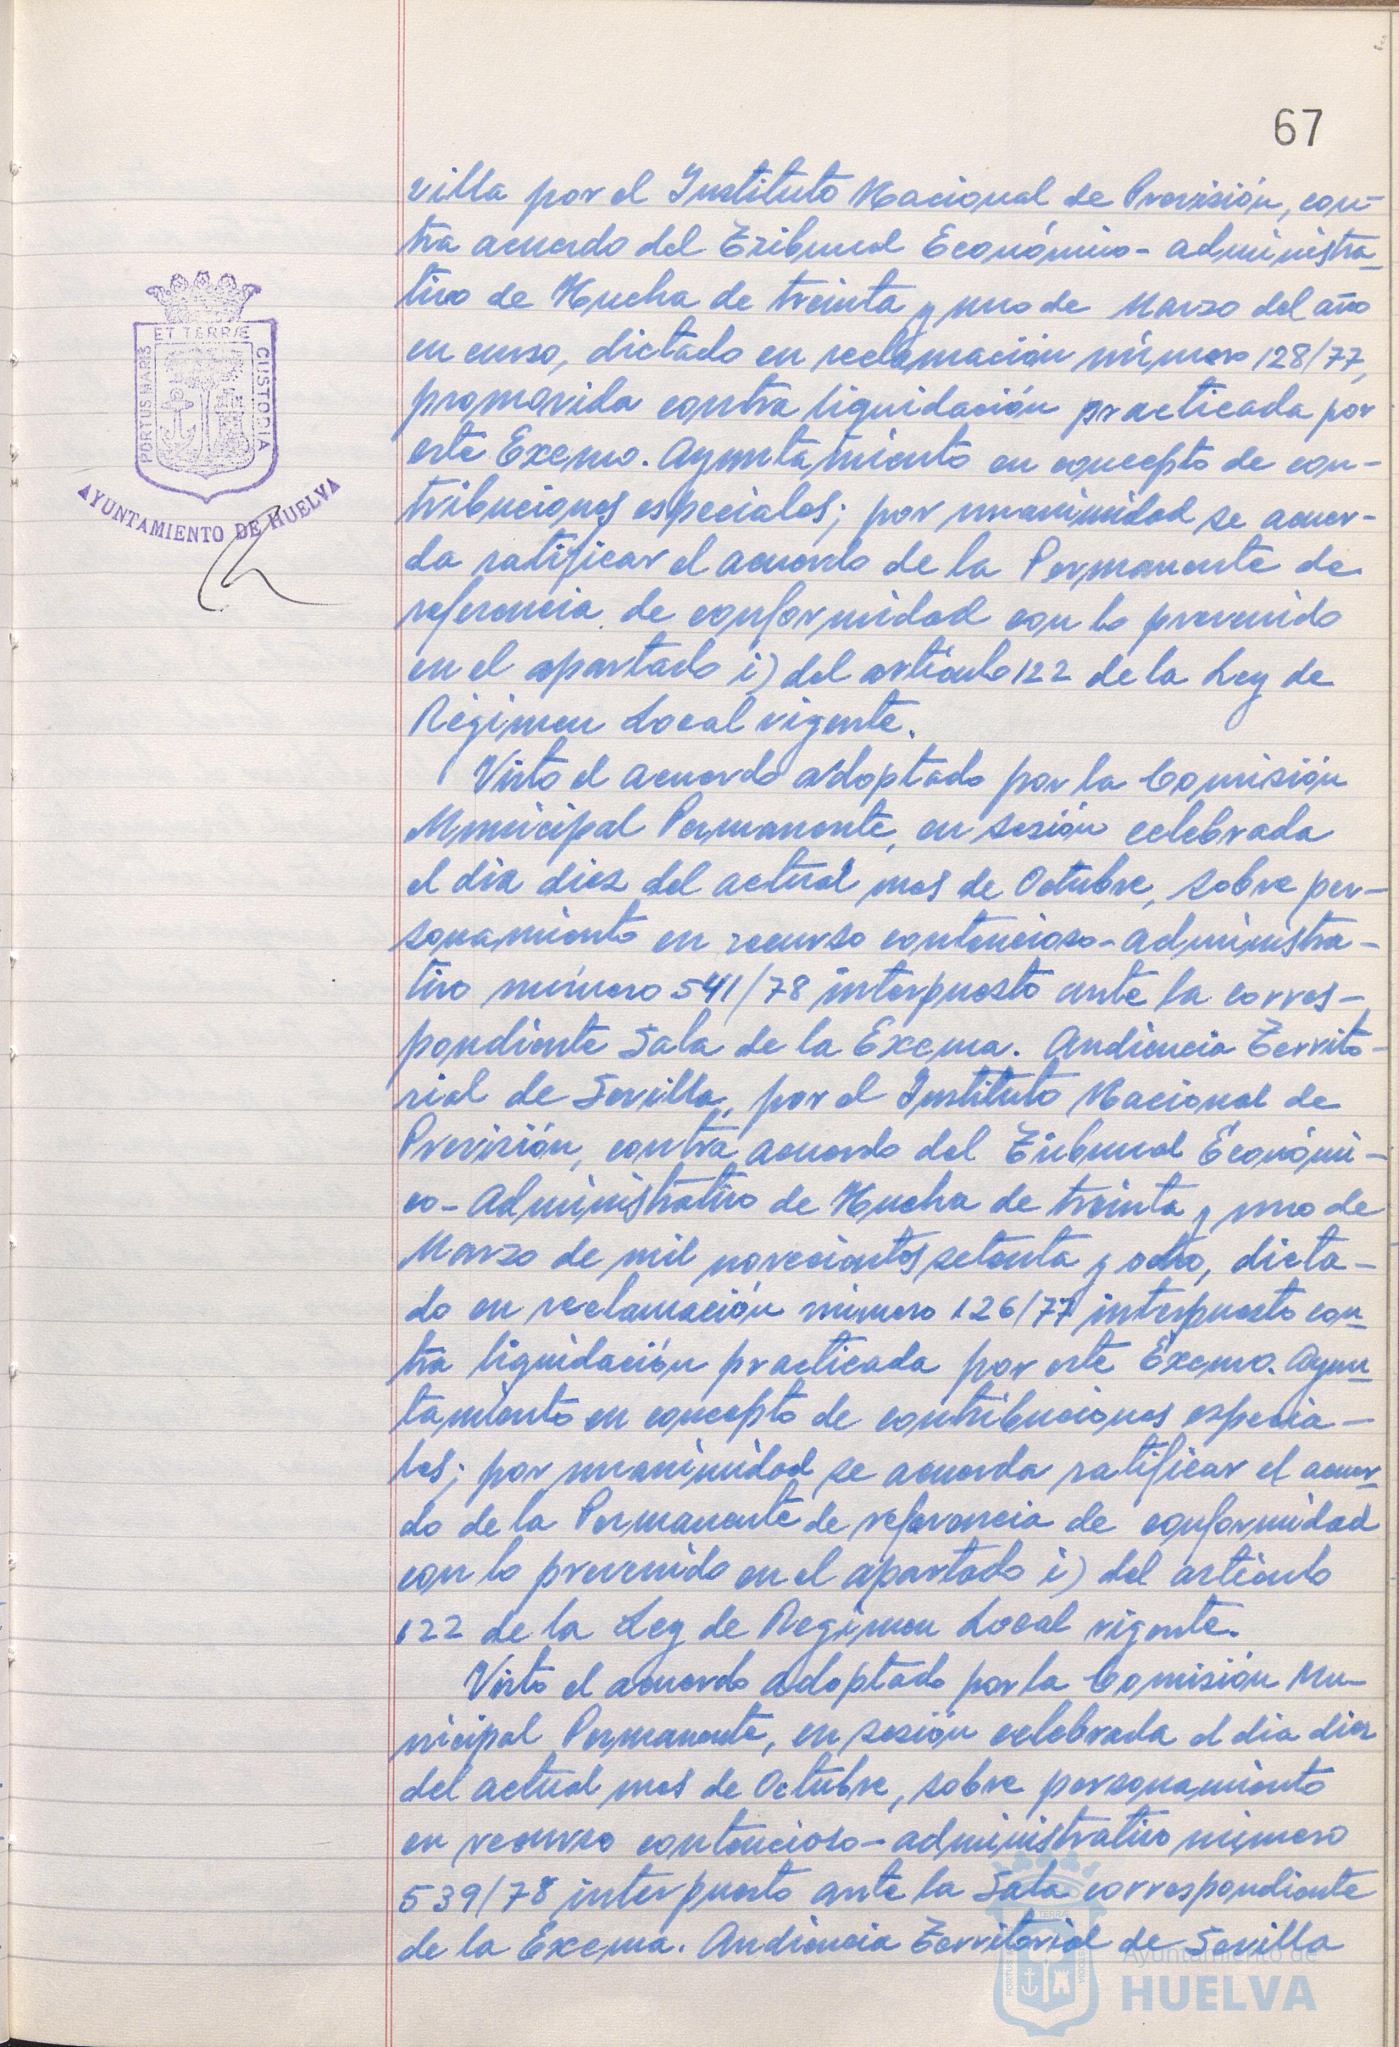 67
villa por el Instituto Nacional de Previsión, con-
tra acuerdo del Tribunal Económico-administra-
tivo de Huelva de treinta y uno de Marzo del año
en curso, dictado en reclamación número 128/77,
promovida contra liquidación practicada por
este Excmo. Ayuntamiento en concepto de con-
tribuciones especiales; por unanimidad se acuer-
da ratificar el acuerdo de la Permanente de
referencia de conformidad con lo prevenido
en el apartado i) del artículo 122 de la Ley de
Régimen Local vigente.
Visto el acuerdo adoptado por la Comisión
Municipal Permanente, en sesión celebrada
el día diez del actual mes de Octubre, sobre per-
sonamiento en recurso contencioso-administra-
tivo número 541/78 interpuesto ante la corres-
pondiente Sala de la Excma. Audiencia Territo-
rial de Sevilla, por el Instituto Nacional de
Previsión, contra acuerdo del Tribunal Económi-
co-Administrativo de Huelva de treinta y uno de
Marzo de mil novecientos setenta y ocho, dicta-
do en reclamación número 126/77 interpuesto con-
tra liquidación practicada por este Excmo. Ayun-
tamiento en concepto de contribuciones especia-
les; por unanimidad se acuerda ratificar el acuer-
do de la Permanente de referencia de conformidad
con lo prevenido en el apartado i) del artículo
122 de la Ley de Régimen Local vigente.
Visto el acuerdo adoptado por la Comisión Mu-
nicipal Permanente, en sesión celebrada el día diez
del actual mes de Octubre, sobre personamiento
en recurso contencioso-administrativo número
539/78 interpuesto ante la Sala correspondiente
de la Excma. Audiencia Territorial de Sevilla
PORTUS MARIS
ET TERRÆ
CUSTODIA
AYUNTAMIENTO DE HUELVA
Ayuntamiento de
HUELVA